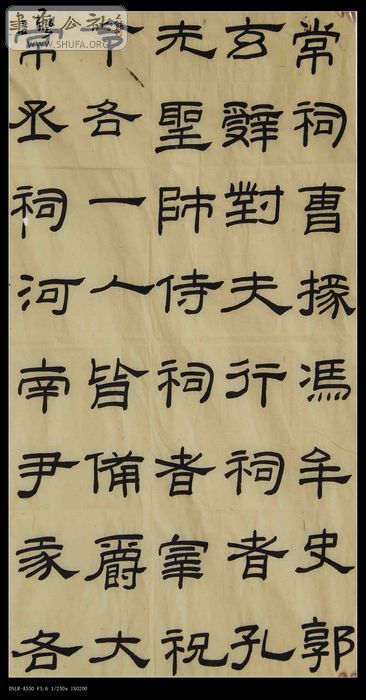 常祠曹掾馮牟史郭
玄辤對夫行祠者孔
先聖師侍祠者宰祝
各一人皆備爵大
常丞祠河南尹豕各
書藝公社
WWW.SHUFA.ORG
DSLR-A550 F5.6 1/250s ISO200